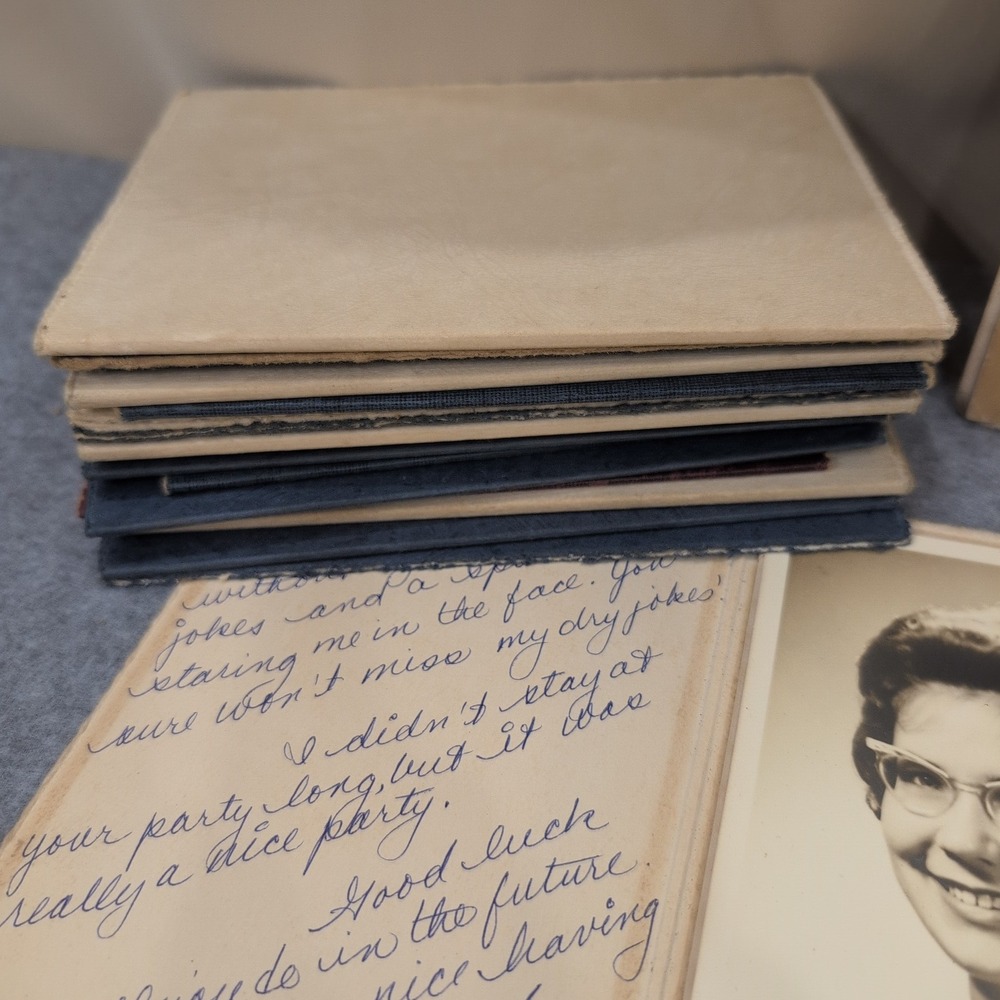 without
jokes and a
staring me in the face. You
sure won't miss my dry jokes!
I didn't stay at
your party long, but it was
really a nice party.
Good luck
you do in the future.
nice having